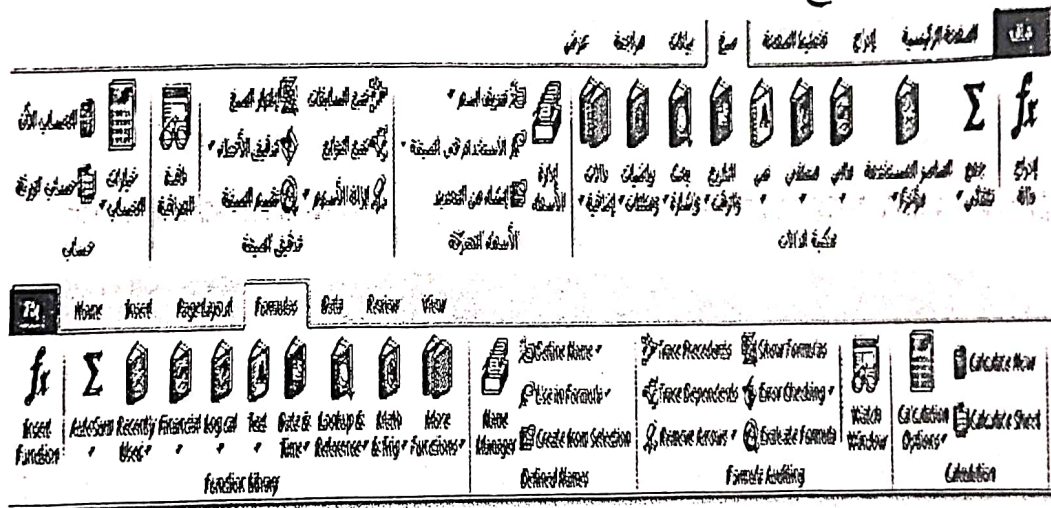 ملف الصفحة الرئيسية إدراج تخطيط الصفحة صيغ بيانات مراجعة عرض
fx إدراج دالة
Σ جمع تلقائي
المستخدمة مؤخراً
مالي
منطقي
نص
التاريخ والوقت
بحث وإشارة
رياضيات ومثلثات
دالات إضافية
مكتبة الدالات
إدارة الأسماء
تعريف اسم
الاستخدام في الصيغة
إنشاء من التحديد
الأسماء المعرفة
تتبع السابقات
تتبع التوابع
إزالة الأسهم
إظهار الصيغ
تدقيق الأخطاء
تقييم الصيغة
نافذة المراقبة
تدقيق الصيغة
خيارات الحساب
الحساب الآن
حساب الورقة
حساب
Home Insert Page Layout Formulas Data Review View
fx Insert Function
Σ AutoSum
Recently Used
Financial
Logical
Text
Date & Time
Lookup & Reference
Math & Trig
More Functions
Function Library
Name Manager
Define Name
Use in Formula
Create from Selection
Defined Names
Trace Precedents
Trace Dependents
Remove Arrows
Show Formulas
Error Checking
Evaluate Formula
Watch Window
Formula Auditing
Calculation Options
Calculate Now
Calculate Sheet
Calculation